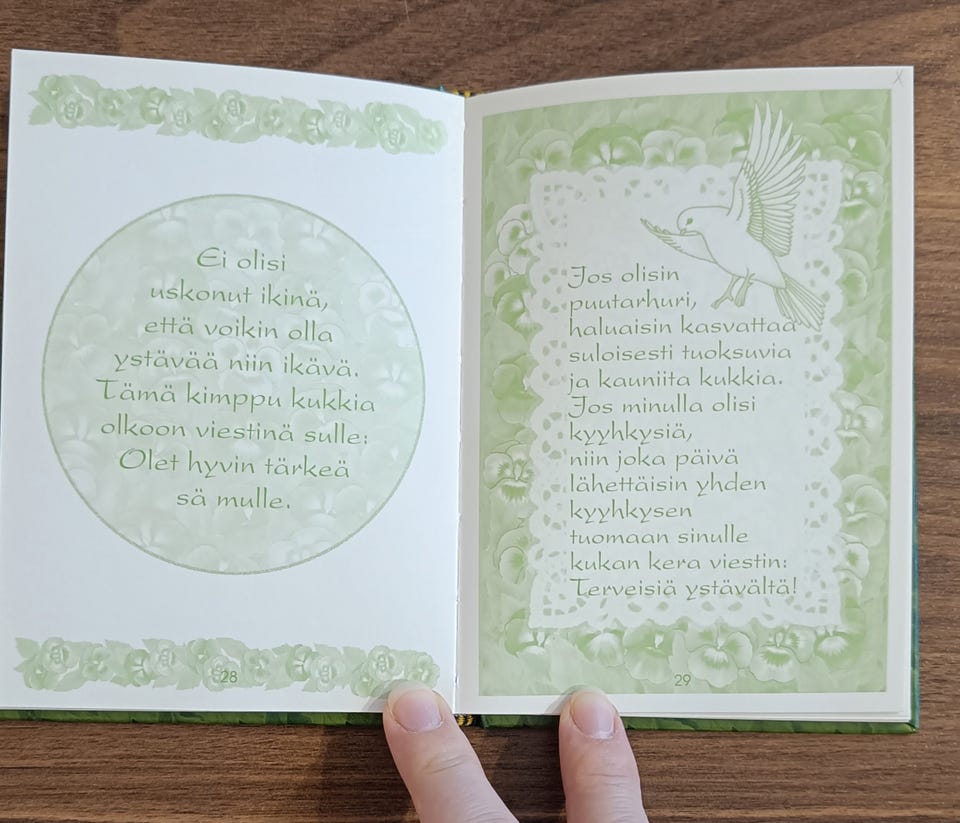 Ei olisi
uskonut ikinä,
että voikin olla
ystävää niin ikävä.
Tämä kimppu kukkia
olkoon viestinä sulle:
Olet hyvin tärkeä
sä mulle.
28
Jos olisin
puutarhuri,
haluaisin kasvattaa
suloisesti tuoksuvia
ja kauniita kukkia.
Jos minulla olisi
kyyhkysiä,
niin joka päivä
lähettäisin yhden
kyyhkysen
tuomaan sinulle
kukan kera viestin:
Terveisiä ystävältä!
29